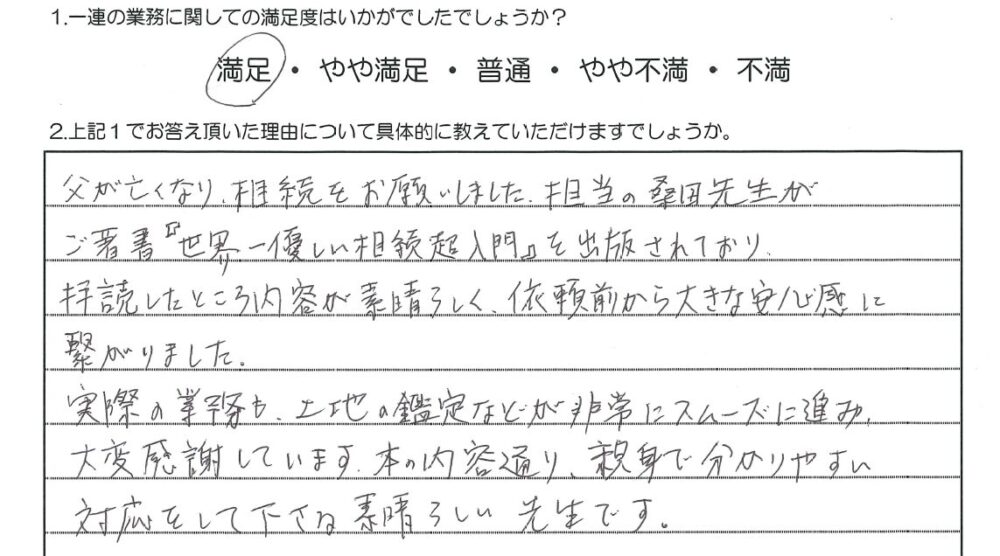 1.一連の業務に関しての満足度はいかがでしたでしょうか？
満足・やや満足・普通・やや不満・不満
2.上記１でお答え頂いた理由について具体的に教えていただけますでしょうか。
父が亡くなり、相続をお願いしました。担当の桑田先生が
ご著書『世界一優しい相続超入門』を出版されており、
拝読したところ内容が素晴らしく、依頼前から大きな安心感に
繋がりました。
実際の業務も、土地の鑑定などが非常にスムーズに進み、
大変感謝しています。本の内容通り、親身で分かりやすい
対応をして下さる素晴らしい先生です。